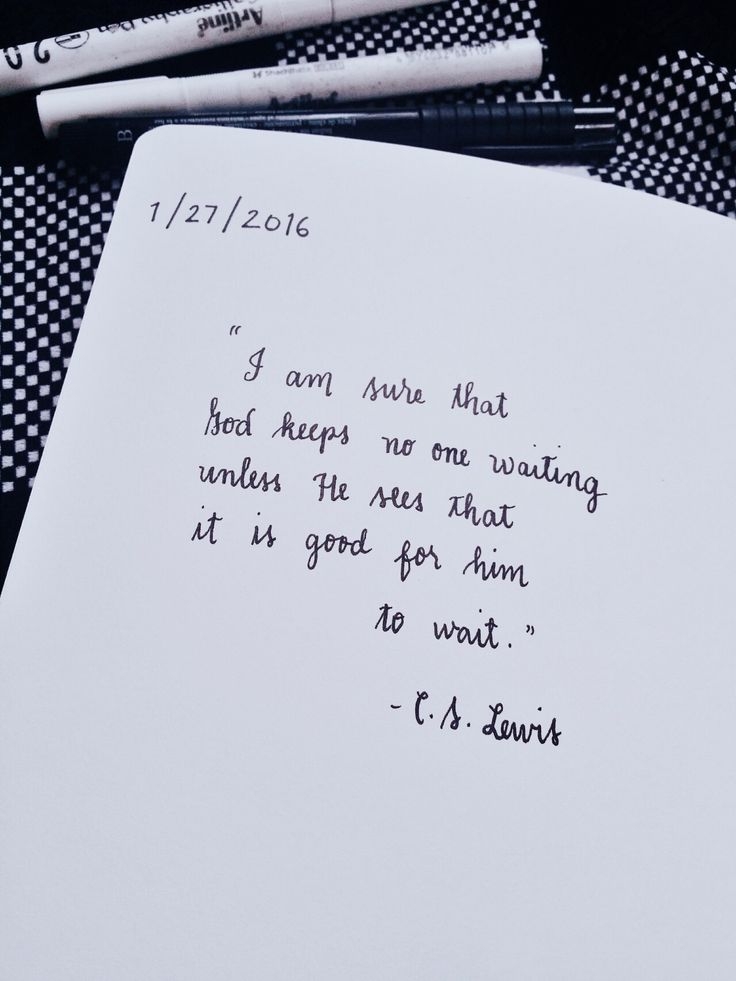 Artline
Calligraphy Pen 2.0
B
1/27/2016
"I am sure that
God keeps no one waiting
unless He sees that
it is good for him
to wait."
- C. S. Lewis